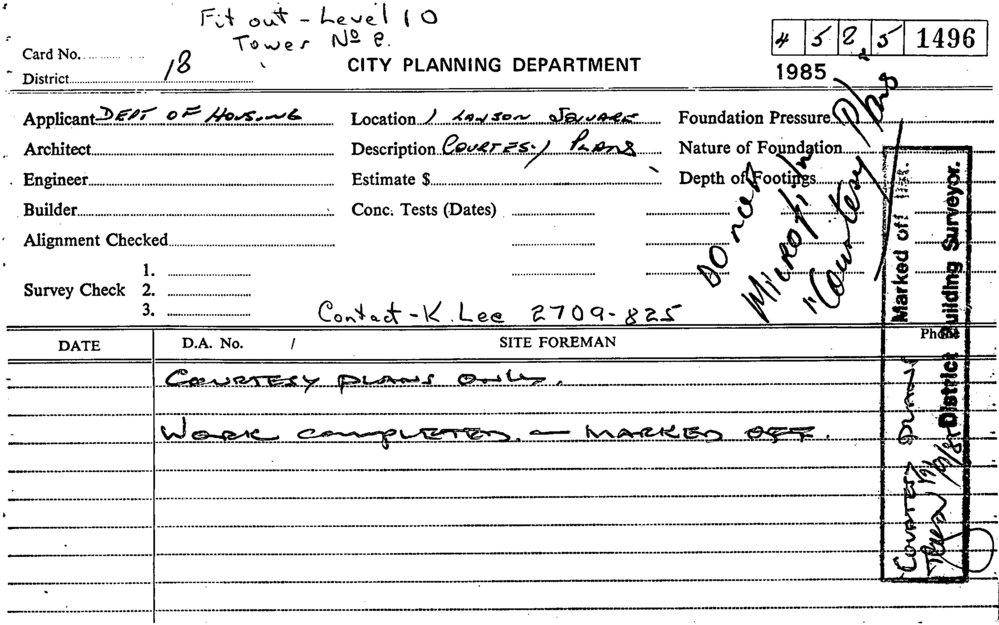 Fit out - Level 10
Tower No
4 5 8 5 1496
Card No.
District 18
CITY PLANNING DEPARTMENT
1985
Applicant DEPT OF HOUSING
Location 1 LAWSON SQUARE
Foundation Pressure
Architect
Description COURTESY PLANS
Nature of Foundation
Engineer
Estimate $
Depth of Footings
Builder
Conc. Tests (Dates)
Alignment Checked
Survey Check
1.
2.
3.
Contact - K. Lee 2709-825
Microfilm
"Courtesy Plans
DATE
D.A. No. /
SITE FOREMAN
Phone
COURTESY PLANS ONLY.
WORK COMPLETED. - MARKED OFF.
Marked off
District Building Surveyor.
COURTESY PLANS